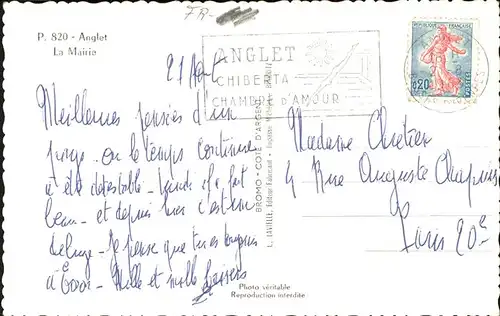 FR-
P. 820 - Anglet
La Mairie
ANGLET
CHIBERTA
CHAMBRE D'AMOUR
REPUBLIQUE FRANÇAISE
0,20
POSTES
21 Août
Meilleures pensées d'un
où le temps continue
à être détestable. Lundi il a fait
beau - et depuis hier c'est un
déluge. Je pense que tu es toujours
à Mille et mille baisers
BROMO - COTE D'ARGENT
Madame Chretien
4 Rue Auguste Chapuis
Paris 20e
Photo véritable
Reproduction interdite